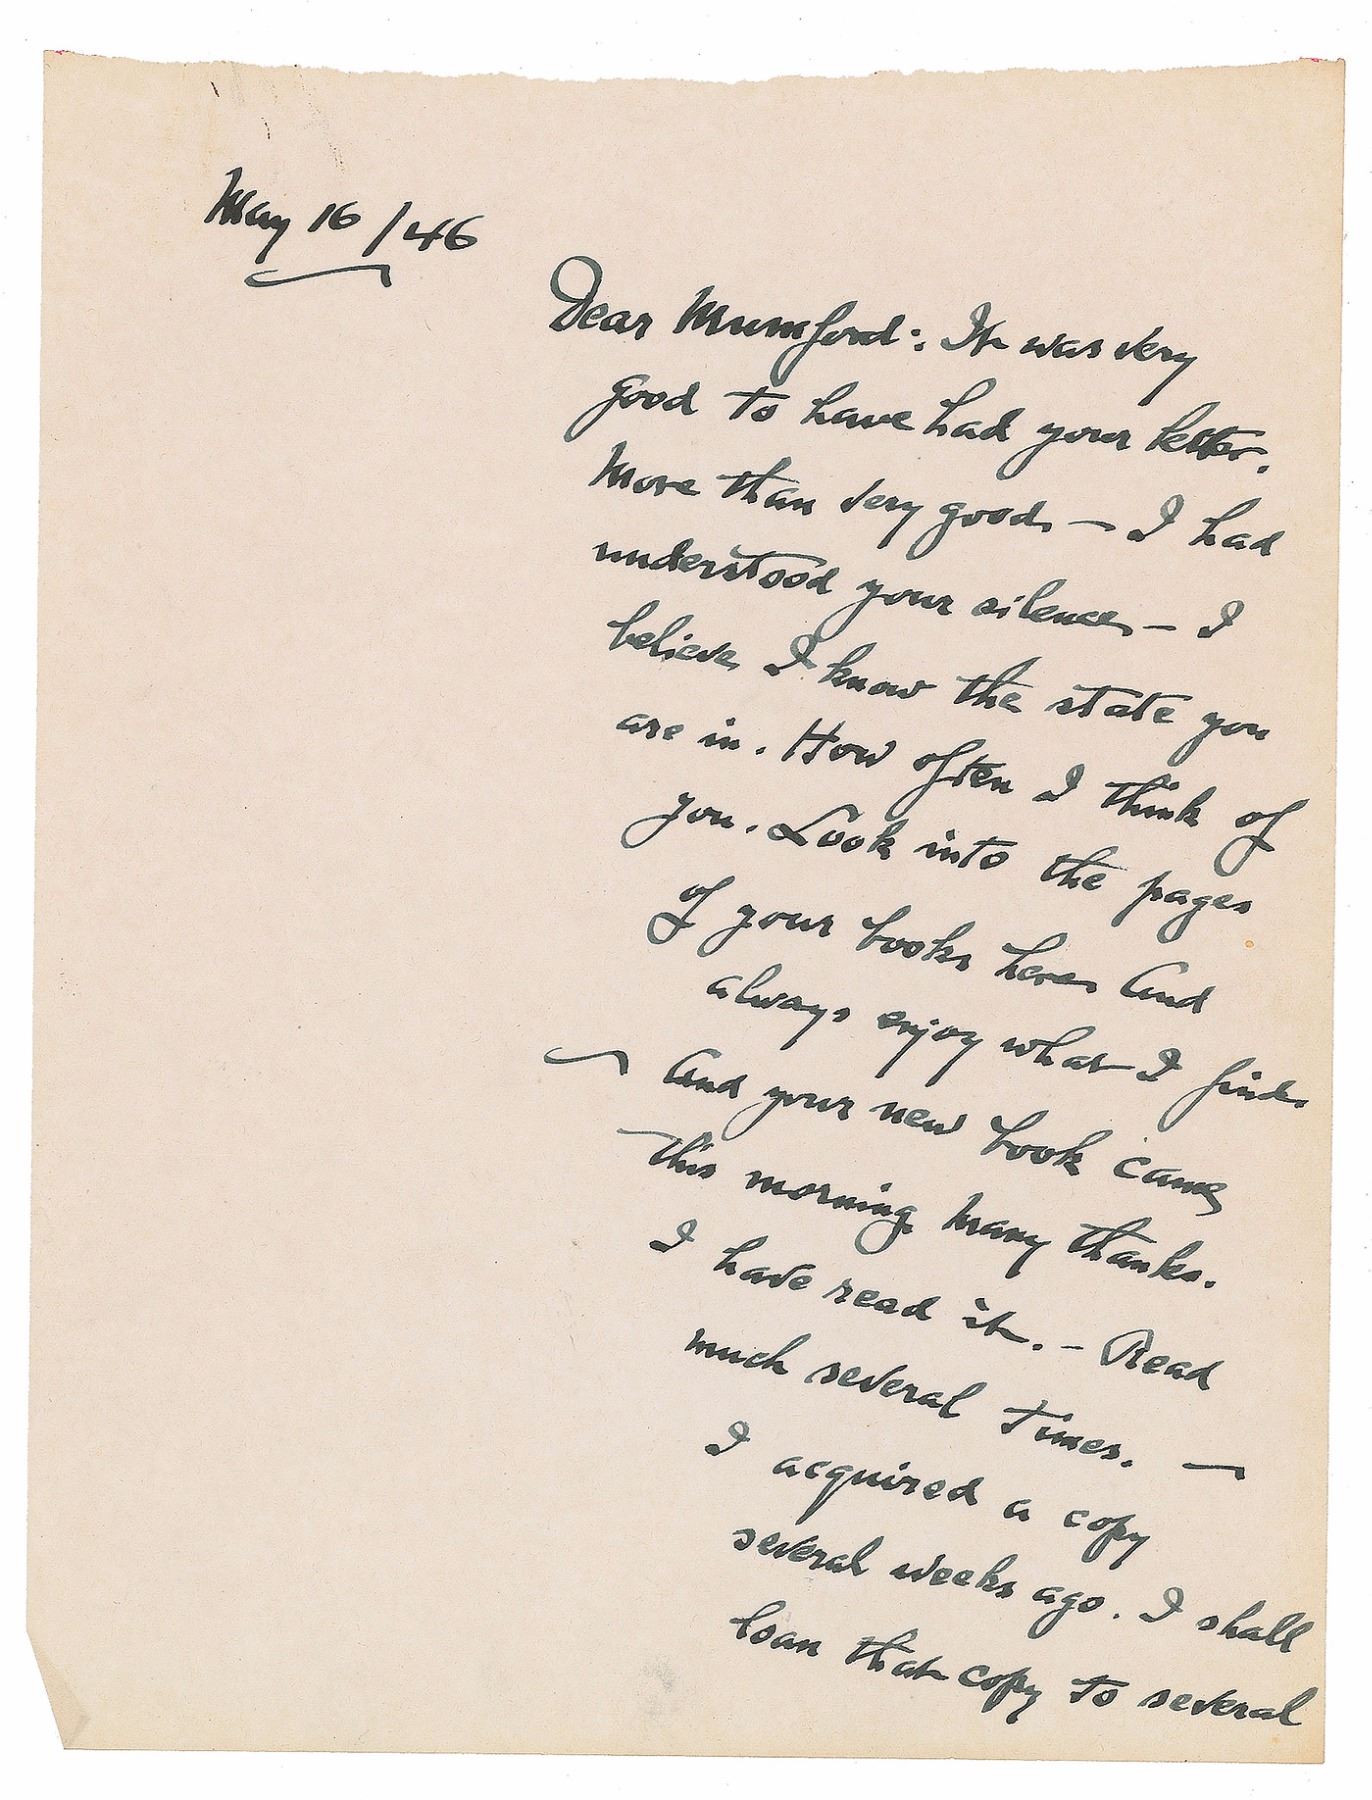 May 16/46
Dear Mumford: It was very
good to have had your letter.
More than very good. — I had
understood your silence. — I
believe I know the state you
are in. How often I think of
you. Look into the pages
of your books here. And
always enjoy what I find.
— And your new book came
this morning. Many thanks.
I have read it. — Read
much several times. —
I acquired a copy
several weeks ago. I shall
loan that copy to several